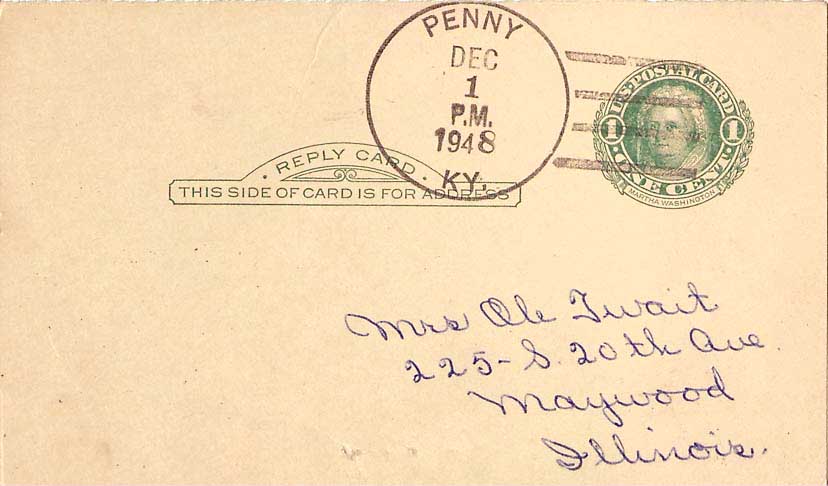 PENNY
DEC
1
P.M.
1948
KY.
U.S. POSTAL CARD
1 1
ONE CENT
MARTHA WASHINGTON
· REPLY CARD ·
THIS SIDE OF CARD IS FOR ADDRESS
Mrs Ole Twait
225 - S. 20th Ave
Maywood
Illinois.